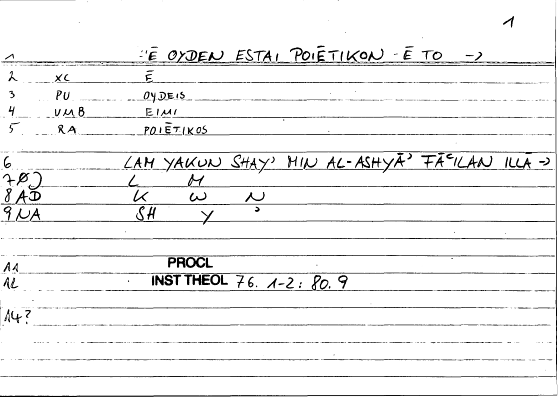 1
1 :Ē OYDEN ESTAI POIĒTIKON - Ē TO →
2 XC Ē
3 PU OYDEIS
4 VMB EIMI
5 RA POIĒTIKOS
6 LAM YAKUN SHAY' MIN AL-ASHYĀ' FĀʿILAN ILLĀ →
7 L M
8 AD K W N
9 NA SH Y '
11 PROCL
12 INST THEOL 76. 1-2: 80.9
14?